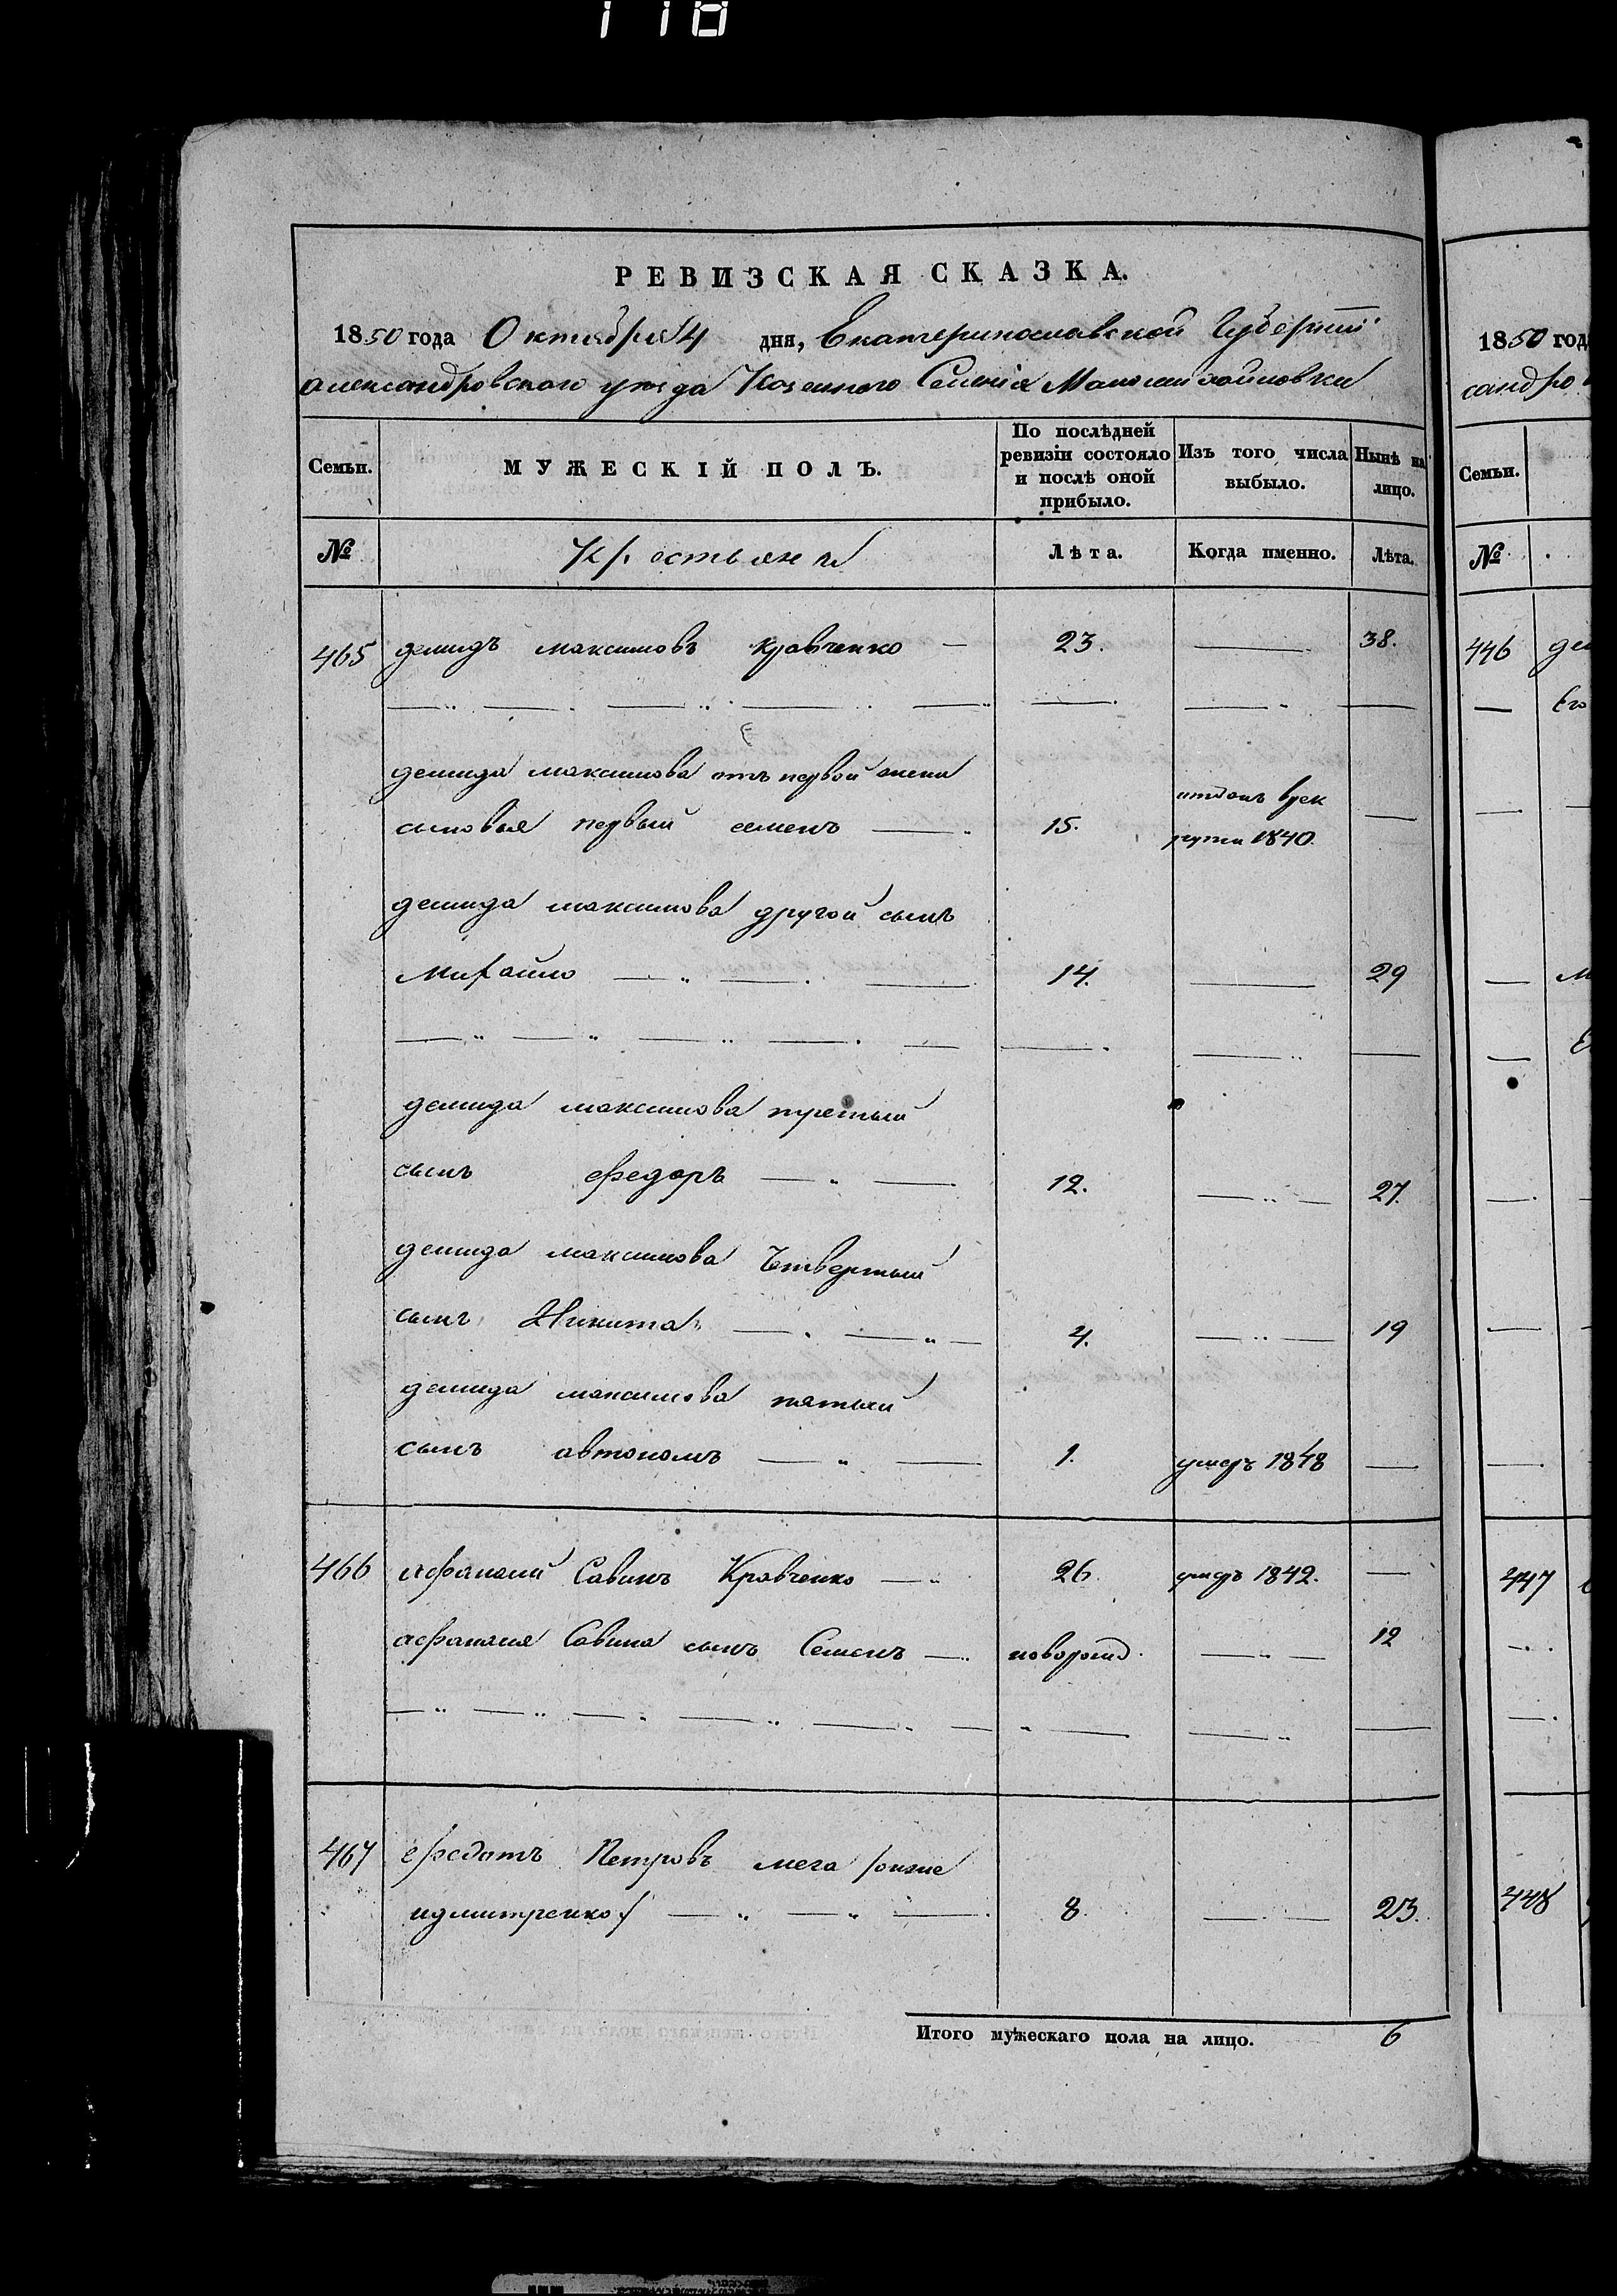 118
РЕВИЗСКАЯ СКАЗКА.
1850 года Октября 4 дня, Екатеринославской Губерніи
александровского уезда Козенного Селенія Маломихайловки
Семьи.
МУЖЕСКІЙ ПОЛЪ.
По послѣдней ревизіи состояло и послѣ оной прибыло.
Изъ того числа выбыло.
Нынѣ на лицо.
№ Крестьяне Лѣта. Когда именно. Лѣта.
465 демидъ максимовъ кравченко — 23. — 38.
демида максимова отъ первой жени
сыновья первый семенъ — 15. отданъ врек
рути 1840. —
демида максимова другой сынъ
михайло — 14. — 29
демида максимова третый
сынъ федоръ — 12. — 27.
демида максимова Чтвертый
сынъ Никита — 4. — 19
демида максимова пятый
сынъ автономъ — 1. умеръ 1848 —
466 афанасий Савинъ Кравченко — 26. умеръ 1842. —
афанасия Савина сынъ Семенъ — новорожд. — 12
467 федотъ Петровъ мега /онже
идмитренко/ — 8. — 23.
Итого мужескаго пола на лицо. 6
1850 год
сандро
Семьи.
№
446
447
448